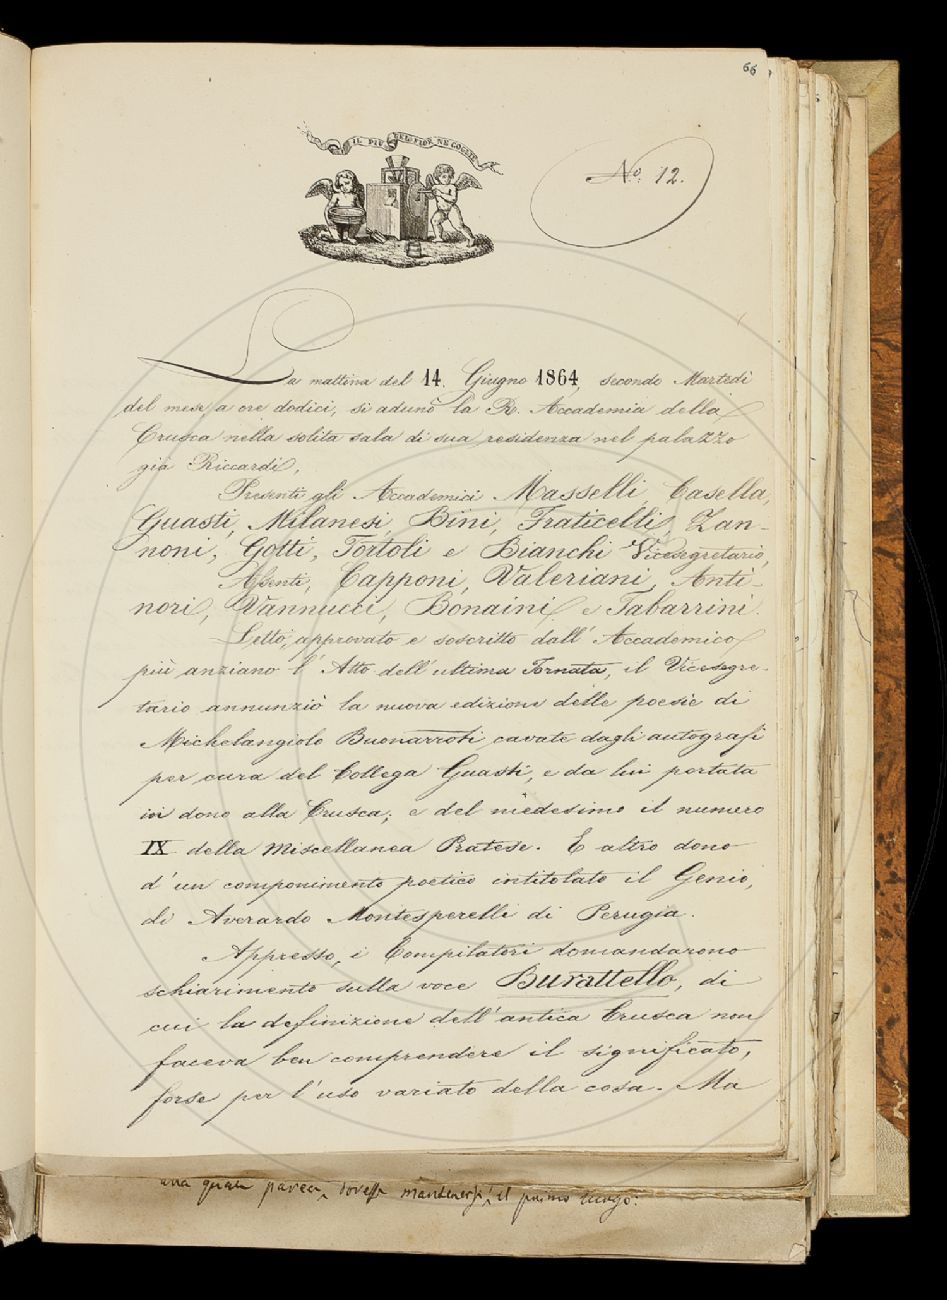 66
IL PIÙ BEL FIOR NE COGLIE
No. 12.
La mattina del 14. Giugno 1864, secondo Martedì
del mese, a ore dodici, si adunò la R. Accademia della
Crusca nella solita sala di sua residenza nel palazzo
già Riccardi.
Presenti gli Accademici Masselli, Casella,
Guasti, Milanesi, Bini, Fraticelli, Zan-
noni, Gotti, Tortoli e Bianchi Vicesegretario,
Assenti, Capponi, Valeriani, Anti-
nori, Vannucci, Bonaini, e Tabarrini.
Letto, approvato e soscritto dall' Accademico
più anziano l' Atto dell' ultima Tornata, il Vicesegre-
tario annunziò la nuova edizione delle poesie di
Michelangiolo Buonarroti cavate dagli autografi
per cura del Collega Guasti, e da lui portata
in dono alla Crusca; e del medesimo il numero
IX della Miscellanea Pratese. E altro dono
d' un componimento poetico intitolato il Genio,
di Averardo Montesperelli di Perugia.
Appresso, i Compilatori domandarono
schiarimento sulla voce Burattello, di
cui la definizione dell' antica Crusca non
faceva ben comprendere il significato,
forse per l' uso variato della cosa. Ma
parea, dovesse mantenersi il primo luogo: